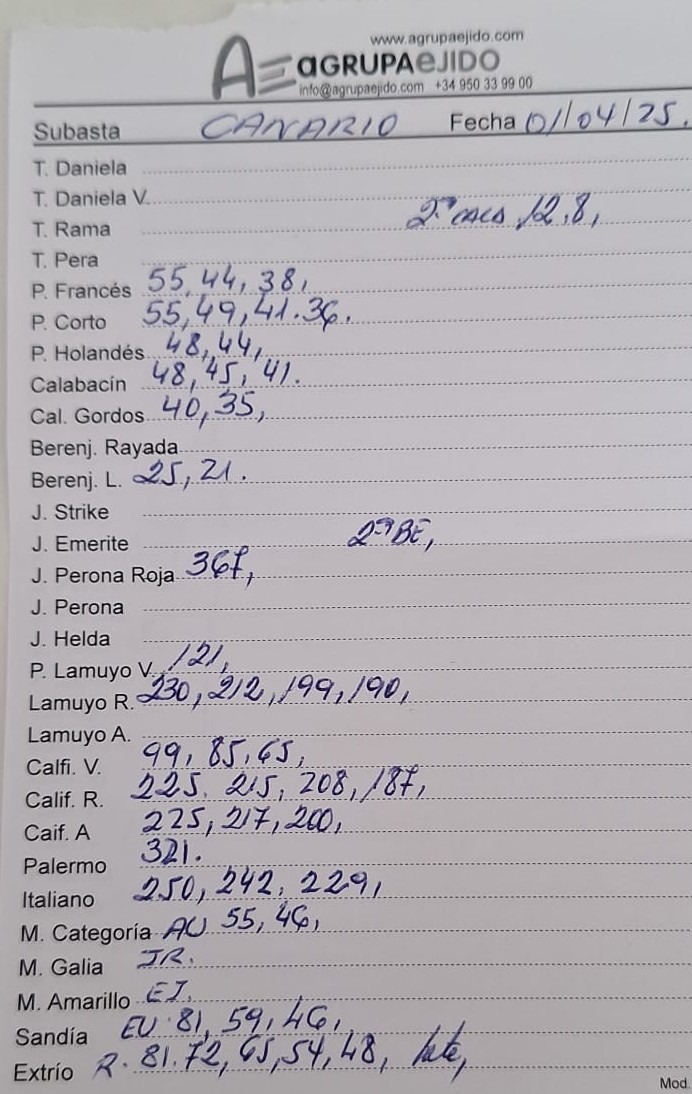 www.agrupaejido.com
AE aGRUPAeJIDO
info@agrupaejido.com +34 950 33 99 00
Subasta CANARIO Fecha 01/04/25.
T. Daniela
T. Daniela V.
T. Rama 2ª CALA 12,8,
T. Pera
P. Francés 55,44,38,
P. Corto 55,49,41.36.
P. Holandés 48,44,
Calabacín 48,45,41.
Cal. Gordos 40,35,
Berenj. Rayada
Berenj. L. 25,21.
J. Strike
J. Emerite 2ª BE,
J. Perona Roja 367,
J. Perona
J. Helda
P. Lamuyo V. 121,
Lamuyo R. 230,212,199,190,
Lamuyo A.
Calfi. V. 99,85,65,
Calif. R. 225. 215, 208,187,
Caif. A 225,217,200,
Palermo 321.
Italiano 250,242,229,
M. Categoría AU 55,46,
M. Galia JR.
M. Amarillo EJ.
Sandía EU. 81,59,46,
Extrío R. 81.72,65,54,48,
Mod.